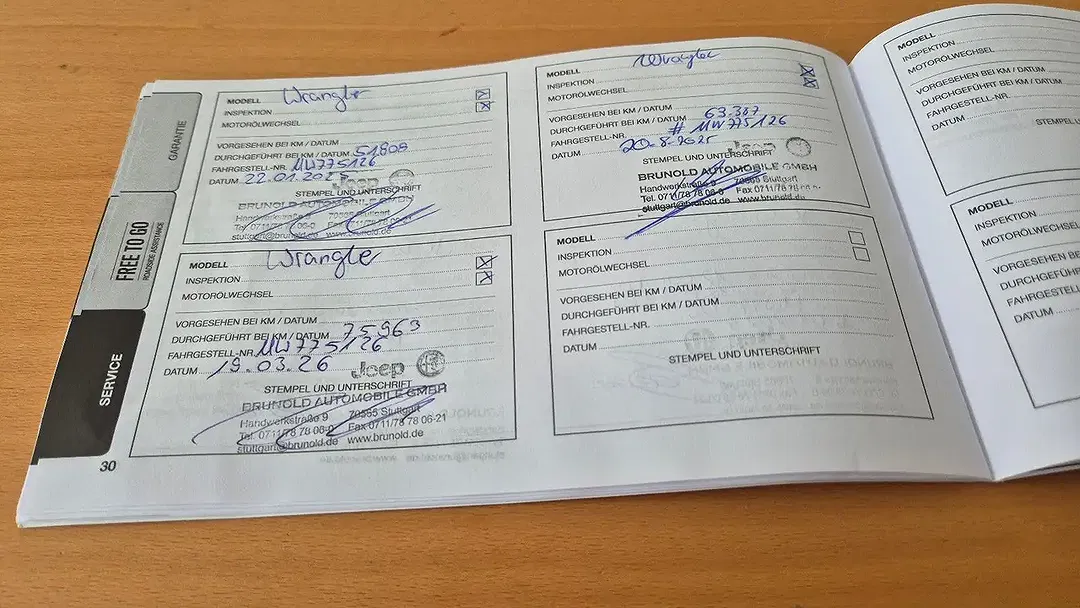 GARANTIE
FREE TO GO
ROADSIDE ASSISTANCE
SERVICE
MODELL Wrangler
INSPEKTION
MOTORÖLWECHSEL
VORGESEHEN BEI KM / DATUM
DURCHGEFÜHRT BEI KM / DATUM 51809
FAHRGESTELL-NR. MW775126
DATUM 22.01.2025
Jeep
STEMPEL UND UNTERSCHRIFT
BRUNOLD AUTOMOBILE GMBH
Handwerkstraße 9 70565 Stuttgart
Tel. 0711/78 78 06-0 Fax 0711/78 78 06-21
stuttgart@brunold.de www.brunold.de
MODELL Wrangler
INSPEKTION
MOTORÖLWECHSEL
VORGESEHEN BEI KM / DATUM
DURCHGEFÜHRT BEI KM / DATUM 75963
FAHRGESTELL-NR. MW775126
DATUM 19.03.26
Jeep
STEMPEL UND UNTERSCHRIFT
BRUNOLD AUTOMOBILE GMBH
Handwerkstraße 9 70565 Stuttgart
Tel. 0711/78 78 06-0 Fax 0711/78 78 06-21
stuttgart@brunold.de www.brunold.de
30
MODELL Wrangler
INSPEKTION
MOTORÖLWECHSEL
VORGESEHEN BEI KM / DATUM
DURCHGEFÜHRT BEI KM / DATUM 63.387
FAHRGESTELL-NR. # MW775126
DATUM 20.8.2025
Jeep
STEMPEL UND UNTERSCHRIFT
BRUNOLD AUTOMOBILE GMBH
Handwerkstraße 9 70565 Stuttgart
Tel. 0711/78 78 06-0 Fax 0711/78 78 06-21
stuttgart@brunold.de www.brunold.de
MODELL
INSPEKTION
MOTORÖLWECHSEL
VORGESEHEN BEI KM / DATUM
DURCHGEFÜHRT BEI KM / DATUM
FAHRGESTELL-NR.
DATUM
STEMPEL UND UNTERSCHRIFT
MODELL
INSPEKTION
MOTORÖLWECHSEL
VORGESEHEN BEI KM / DATUM
DURCHGEFÜHRT BEI KM / DATUM
FAHRGESTELL-NR.
DATUM
STEMPEL
MODELL
INSPEKTION
MOTORÖLWECHSEL
VORGESEHEN BEI KM
DURCHGEFÜHRT BEI
FAHRGESTELL
DATUM